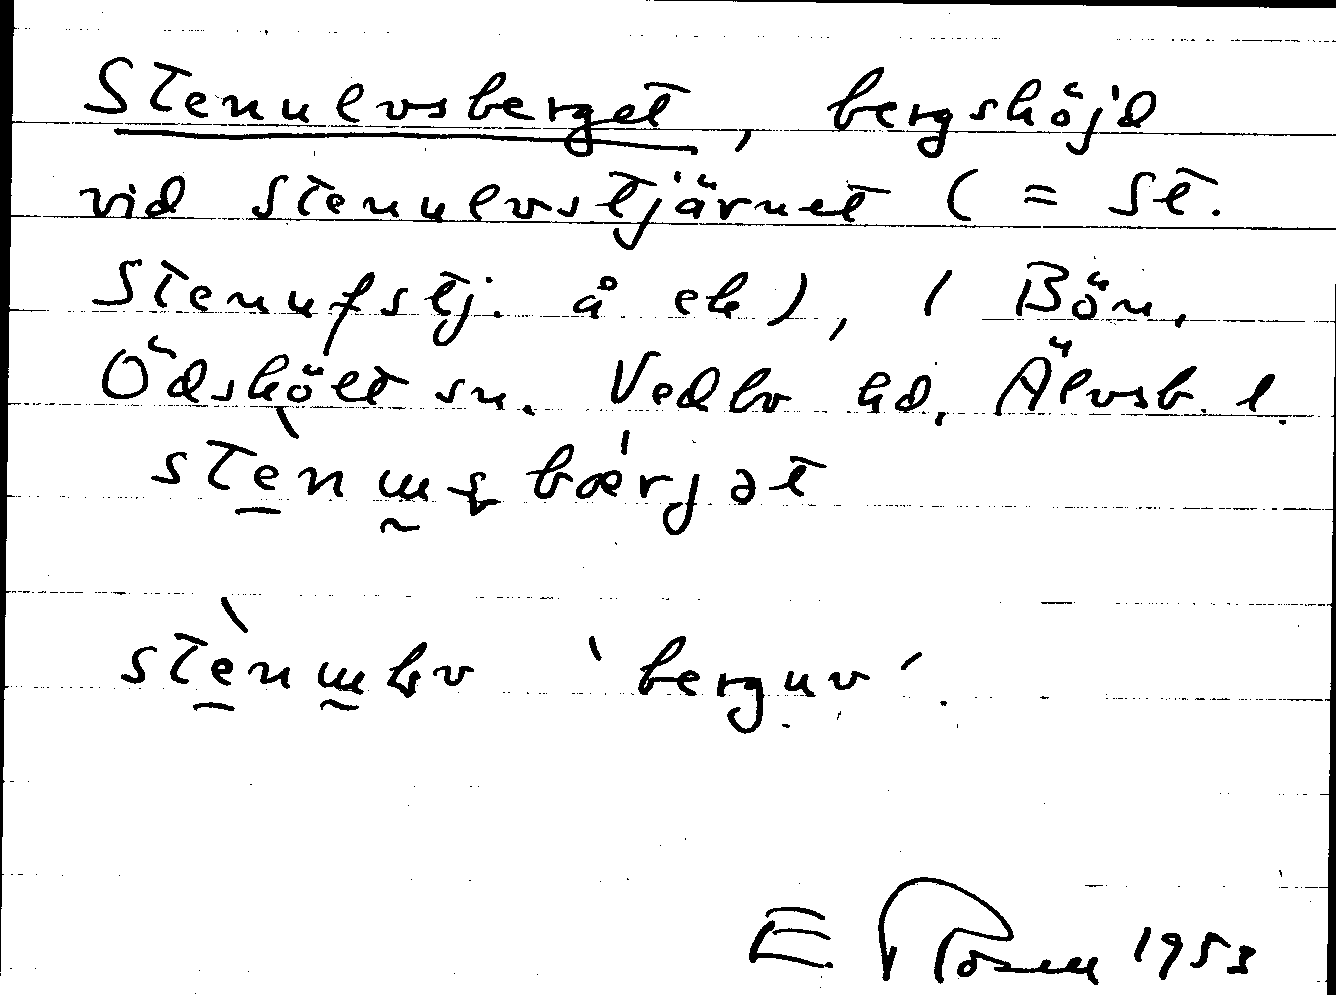 Stenulvsberget, bergshöjd
vid Stenulvstjärnet (= St.
Stenufstj. å ek), i Bön,
Ödskölt sn. Vedbo hd, Älvsb. l.
bærjət
'berguv'.
E. Rosell 1953